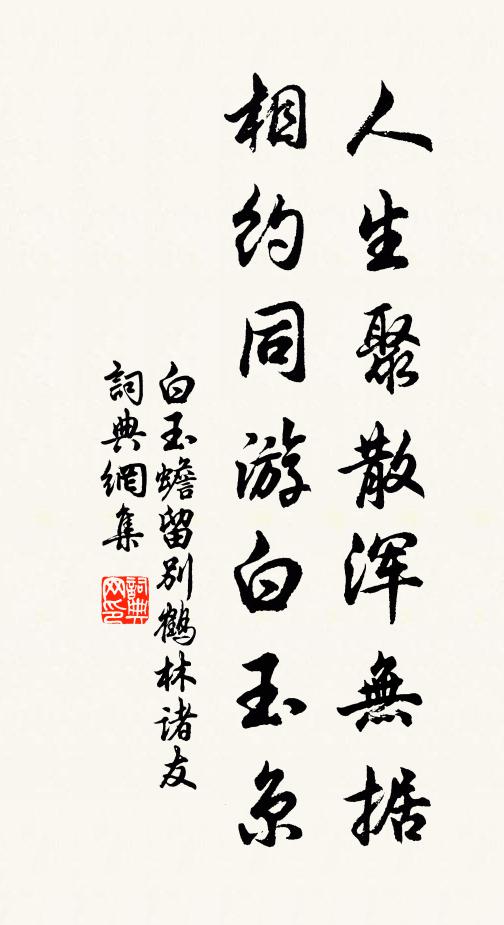 人生聚散浑無据
相约同游白玉京
白玉蟾留别鹤林诸友
詞典網集
詞典
网印